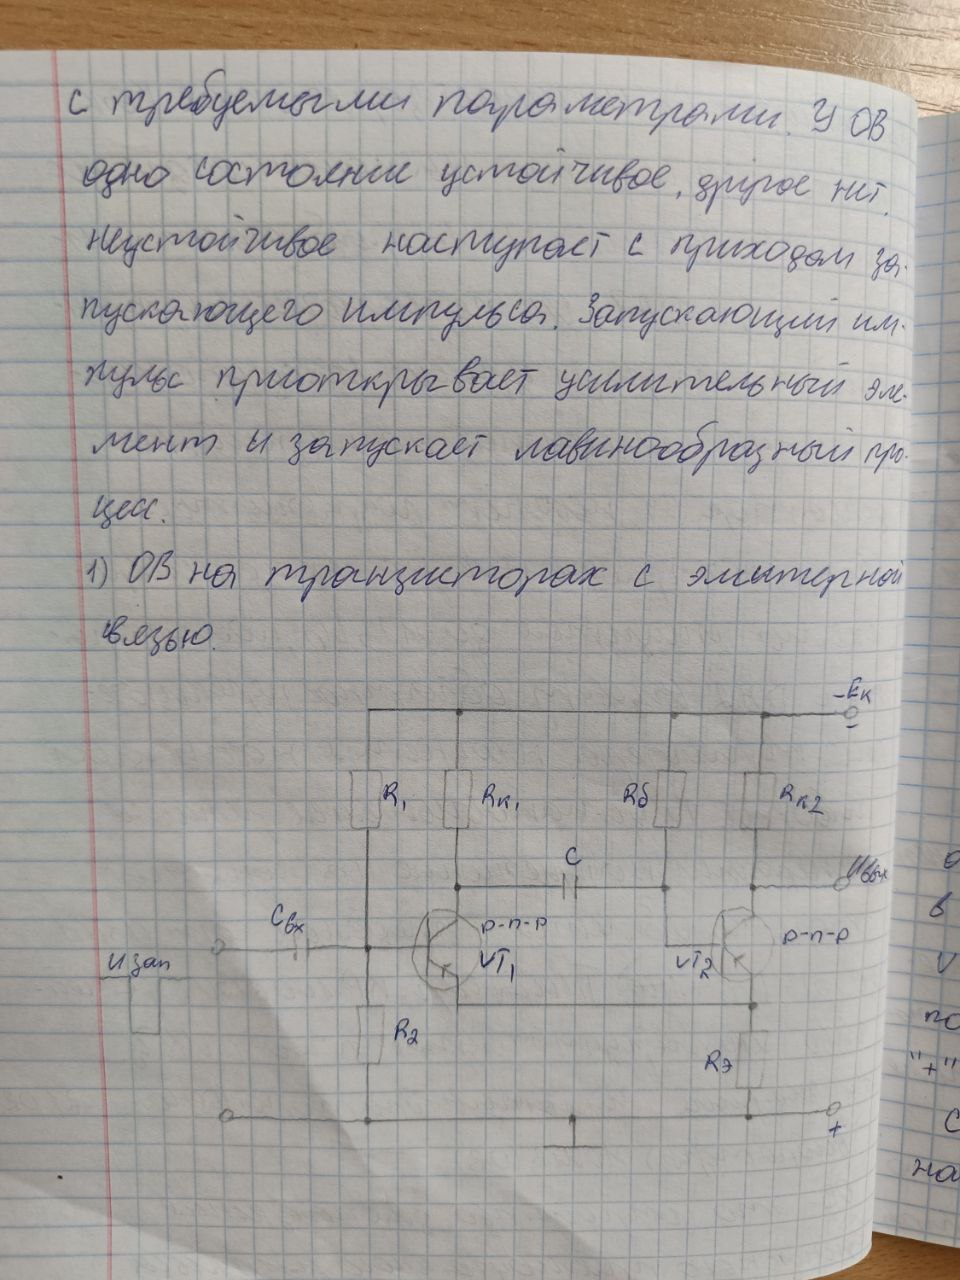 с требуемыми параметрами. У ОВ
одно состояние устойчивое, другое нет.
Неустойчивое наступает с приходом за-
пускающего импульса. Запускающий им-
пульс приоткрывает усилительный эле-
мент и запускает лавинообразный про-
цесс.
1) ОВ на транзисторах с эмитерной
связью.
-Eк
-
R1
Rк1
Rб
Rк2
C
Uвых
Cвх
p-n-p
p-n-p
Uзап
VT1
VT2
R2
Rэ
+
в
"+"
на